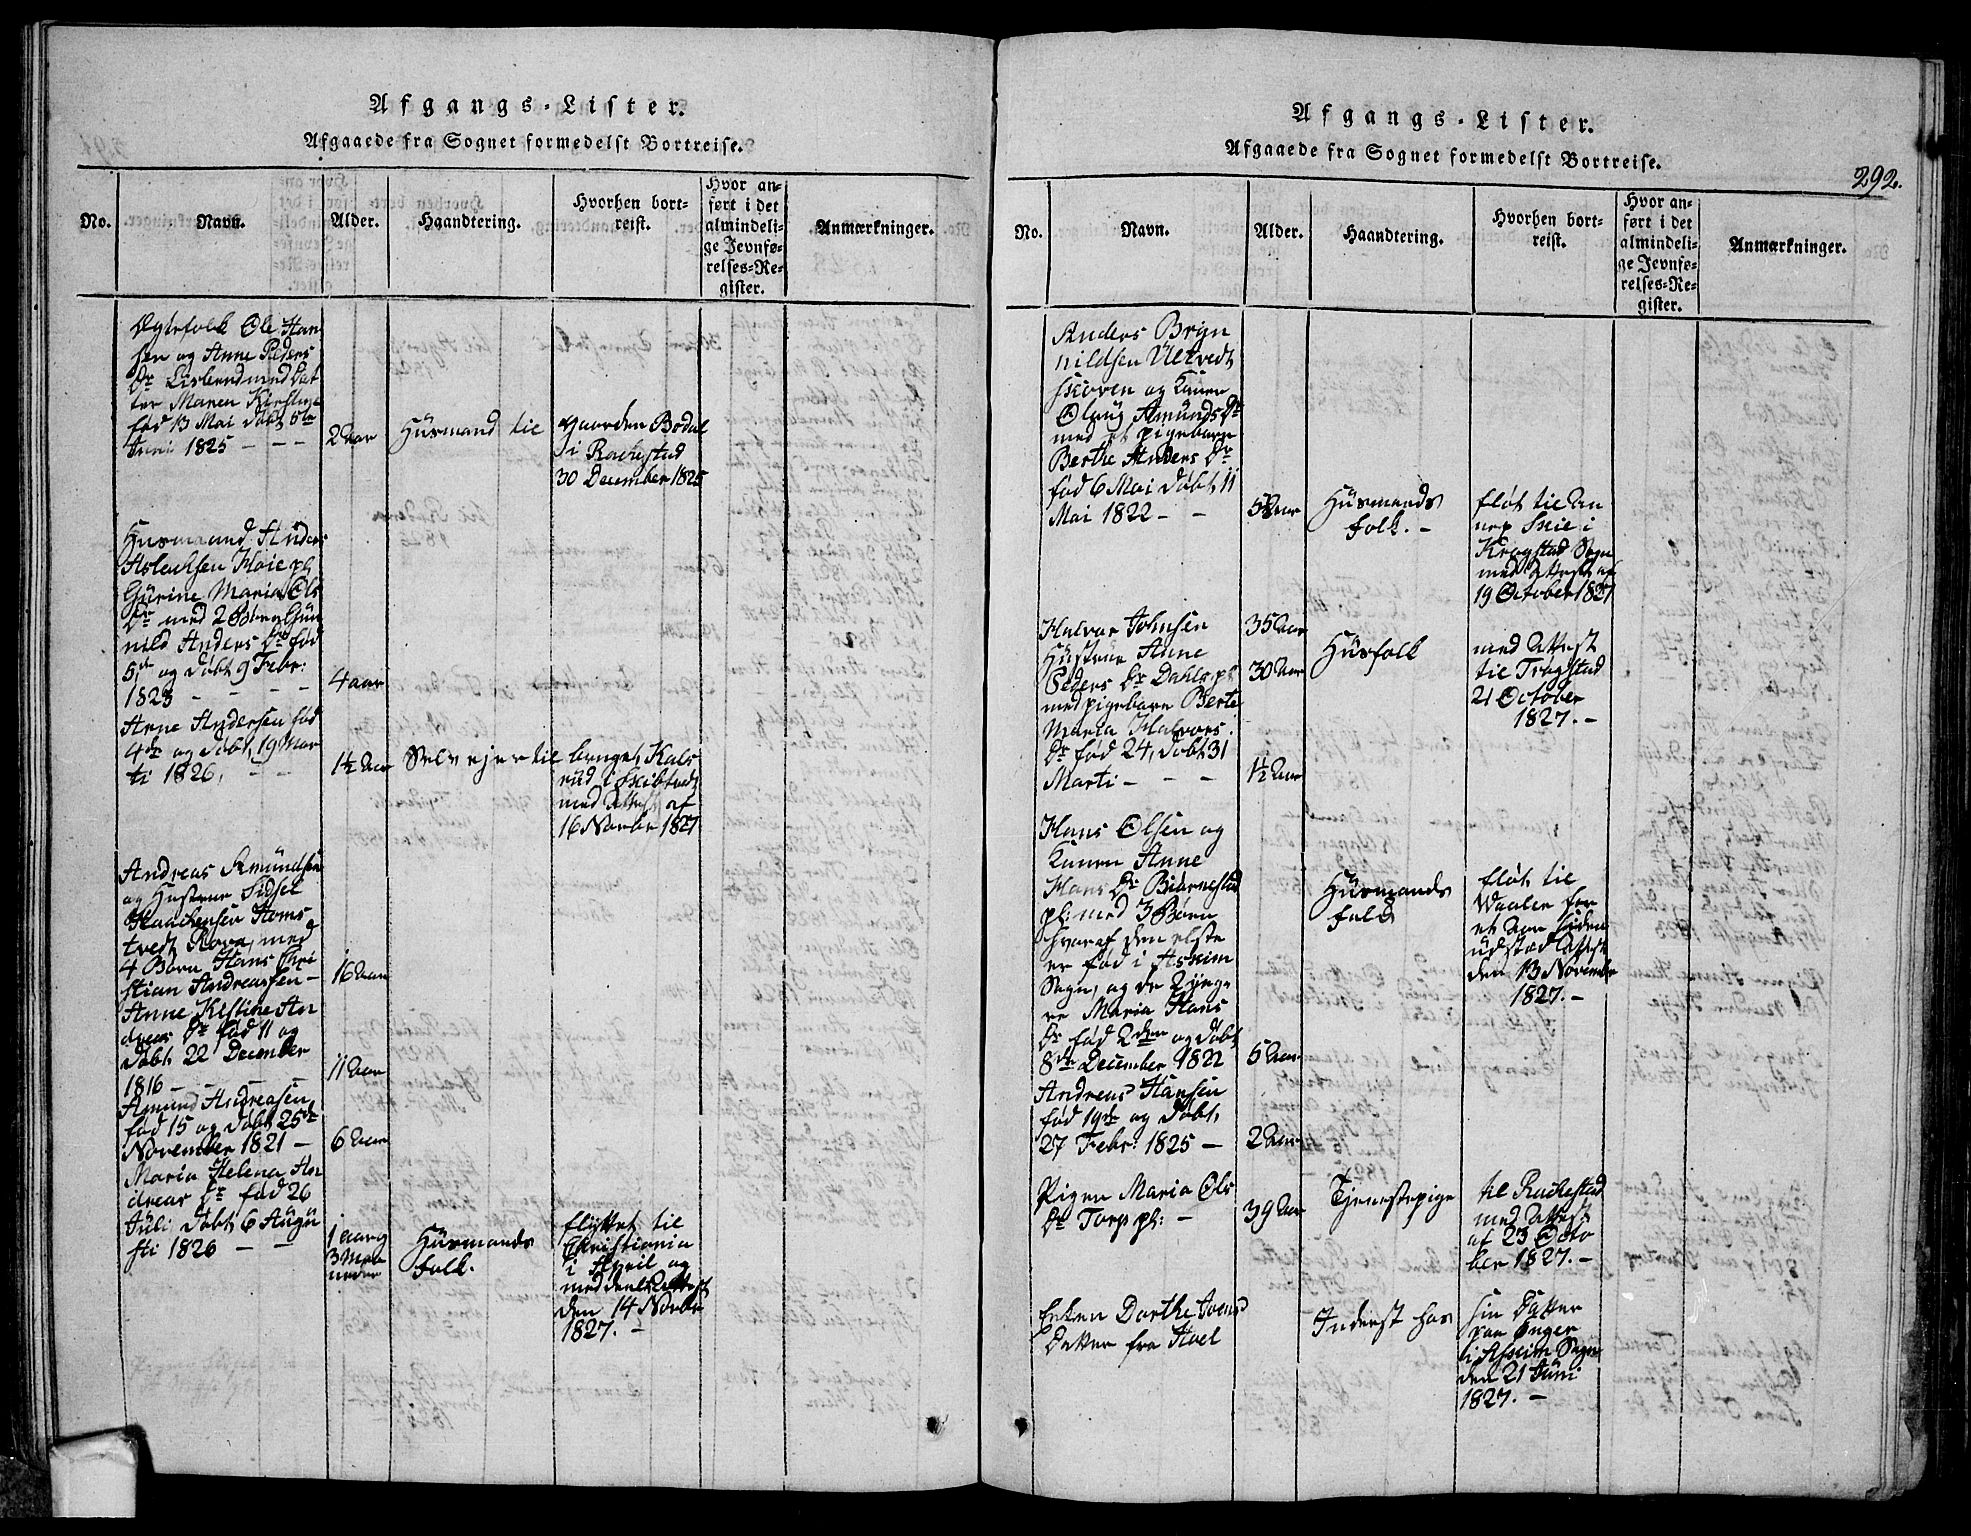 Afgangs-Lister.
Afgaaede fra Sognet formedelst Bortreise.
No.
Navn.
Alder.
Haandtering.
Hvorhen bort-
reist.
Hvor an-
ført i det
almindeli-
ge Jevnfø-
relses-Re-
gister.
Anmærkninger.
Ole Han
sen og Anne Peders
Dr med Dat
ter Maren Kirstine
fød 13 Mai døbt 5te
Juni 1825 - - -
2 Aar
Huusmand til
gaarden Bødal
i Rackestad
30 December 1825
Huusmand Anders
Aslachsen Høie pl
Gurine Maria Ols
Dr med 2 Børn Gun
nild Anders Dr fød
5te og døbt 9 Febr:
1823 - - - -
4 aar
Anne Andersen fød
4de og døbt 19 Mar
ti 1826, - -
1½ Aar
Selvejer til
Kals
rud i Skibtvedt
med Attest af
16 Novbr 1827
Andreas Amundsen
og Hustrue Sidsel
Haachensen Homs
tvedt med
4 Børn Hans Chri
stian Andreassen -
16 Aar
Anne Kirstine An
dreas Dr fød 11 og
døbt 22 December
1816 - - - -
11 Aar
Amund Andreasen
fød 15 og døbt 25de
November 1821 -
6 Aar
Maria Helena An
dreas Dr fød 26
Juli døbt 6 Augu
sti 1826 - -
1 aar og
3 Maa
neder
Huusmands
folk.
flyttet til
Christiania
i April og
med Attest
den 14 Novbr
1827. -
Afgangs-Lister.
Afgaaede fra Sognet formedelst Bortreise.
292.
No.
Navn.
Alder.
Haandtering.
Hvorhen bort-
reist.
Hvor an-
ført i det
almindeli-
ge Jevnfø-
relses-Re-
gister.
Anmærkninger.
Anders Bryn
nildsen Ultvedt
skoven og Kone
Olaug Amunds Dr
med et pigebarn
Berthe Anders Dr
fød 6 Mai døbt 11
Mai 1822 - -
5½ Aar
Huusmands
folk. -
fløt til
i
Krogstad Sogn
med Attest af
19 October 1827
Halvor Johnsen
35 Aar
Hustrue Anne
Peders Dr Dahls pl
30 Aar
med pigebarn Berte
Maria Halvors
Dr fød 24, døbt 31
Marti - - -
1½ Aar
Huusfolk
med Attest
til Trøgstad
21 October
1827. -
Hans Olsen og
Konen Anne
Hans Dr Biørnestad
pl: med 3 Børn
hvoraf den elste
er fød i Askim
Sogn, og de 2 ynge
re Maria Hans
Dr fød 2den og døbt
8de December 1822
5 Aar
Andreas Hansen
fød 19de og døbt
27 Febr: 1825 -
2 Aar
Huusmands
folk
fløt til
Waaler for
et Aar siden
udstæd Attest
den 13 November
1827. -
Pigen Maria Ols
Dr Torp pl: -
39 Aar
Tjenestepige
til Rackestad
med Attest
af 23 Octo
ber 1827. -
Enken Dorthe
Datter fra Hoel
Inderst hos
sin Datter
paa Onger
i Askim Sogn
den 21 Juni
1827. -